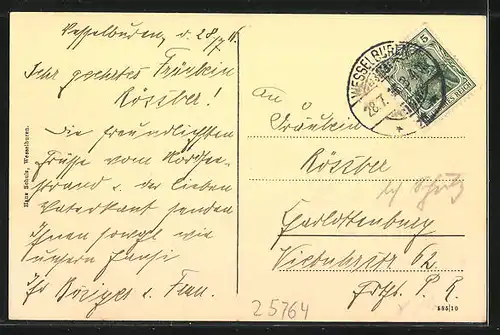 Wesselburen, d. 28/7 11.
Sehr geehrtes Fräulein
Rössber!
Die freundlichsten
Grüsse vom Nordsee-
strand u. der lieben
Waterkant senden
Ihnen sowohl wie
unsern Hansi
Ihr Börger u. Frau.
Hans Schulz, Wesselburen.
WESSELBUREN
28.7.
5
DEUTSCHES REICH
An
Fräulein
Rössber
b/ Schulz
Charlottenburg
Vietuhrstr 62
P. R.
25764